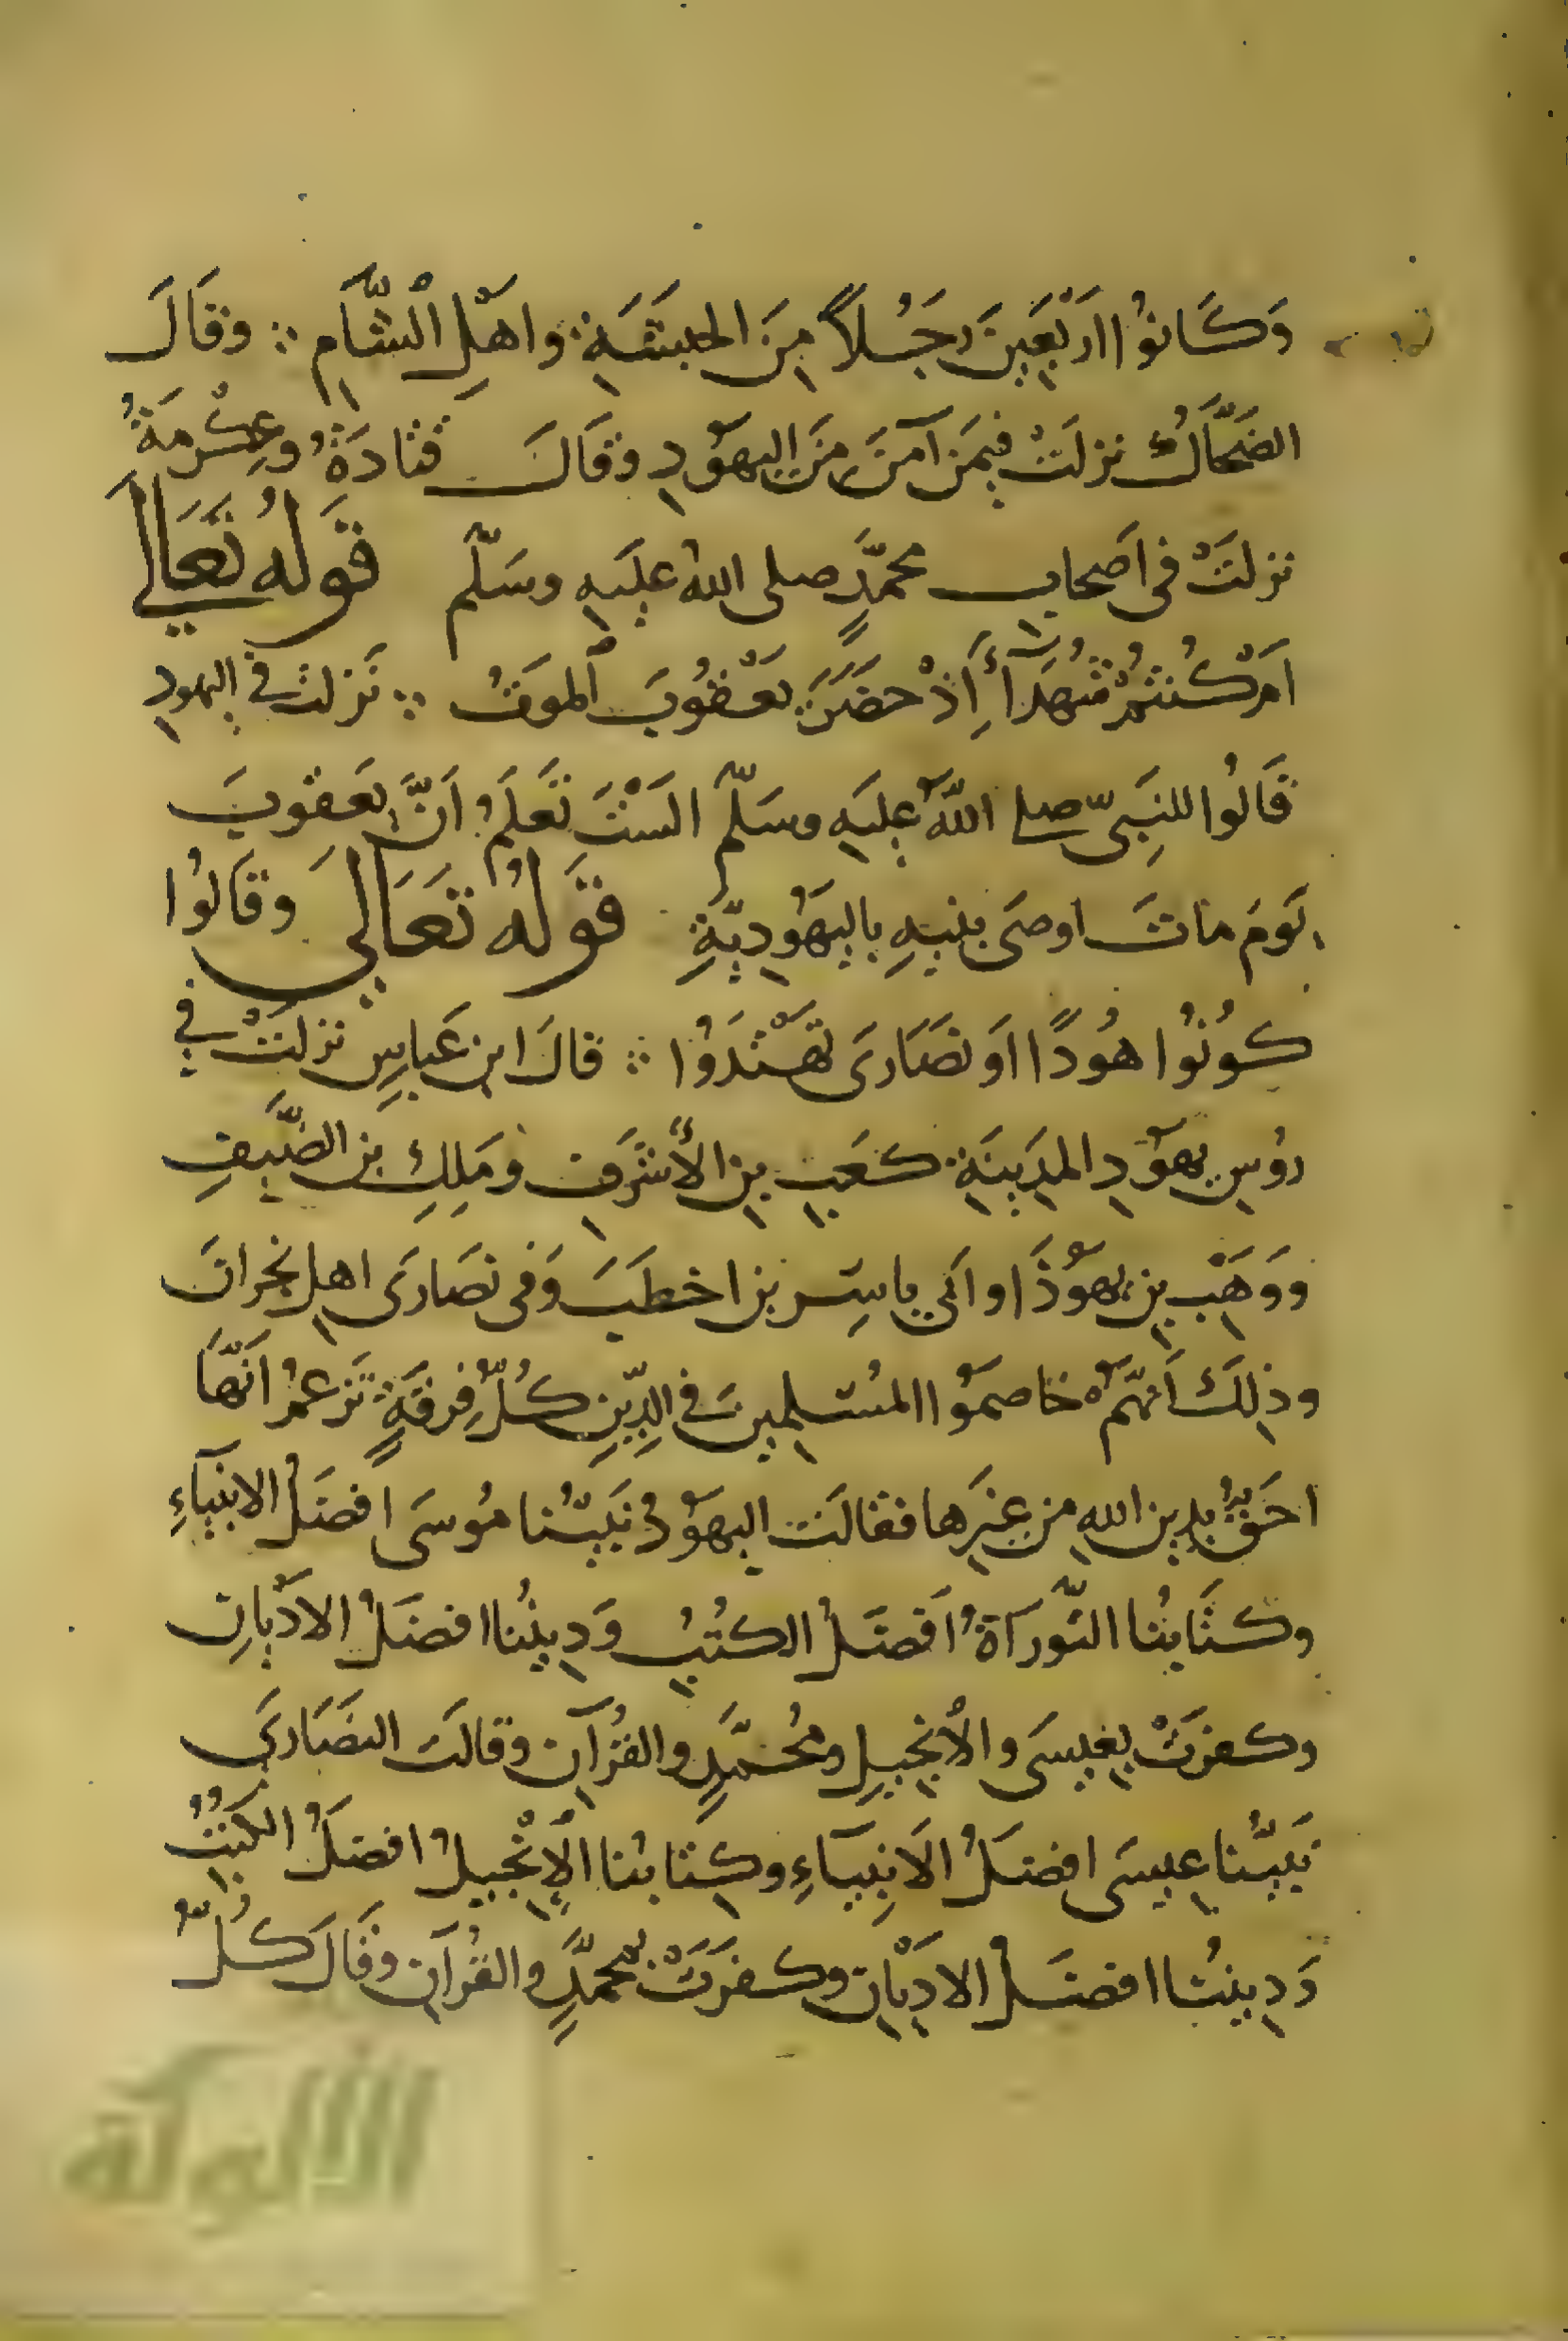 وَكَانوُا ارَبَعَينَ رَجُلاً مِنَ الحبَشَةِ واهْلِ الشَّامِ ∴ وقَالَ
الضَحَّاكُ نزلَتْ فيمَن آمَنَ مِنَ اليهَوُدِ وقَالَ قتادَةُ وعِكْرمَةُ
نزلَتْ فى اَصحابِ محمَّدٍ صلى اللهُ علَيهِ وسَلّم قَولهُ تَعَالَي
اَمْ كُنتُمْ شُهَدَآءَ اِذْ حضَرَ يَعْقوُبَ الموَتُ ∴ نَزلتْ في اليهودِ
قَالُوا للنِبَىّ صلى اللهُ علَيهِ وسَلّم السَتْ تَعلَمُ اَنَّ يَعقوبَ
يَومَ ماتَ اوصَى بنيهِ باليهَوُديّةِ قَولهُ تعَالَي وقَالُوا
كوُنُوا هُودًا اَو نصَارَى تَهتْدَوُا ∴ قالَ ابن عَباسٍ نزلَتْ في
روُسِ يهوُدِ المدَينَةِ كعَبِ بنِ الأشرَفِ ومَلِكِ بن الضَّيفِ
ووَهَبْ بنِ يهوُذَا واَبي ياسِر بن اخطَبَ وَفى نصَارىَ اهلِ نجرانَ
وذلِكَ اَنهّمُ خاصمَوُا المسُلمينَ في الدّينِ كُلُّ فِرقَةٍ تَزعمُ اَنّهَا
احَقُّ بدينِ اللهِ من غيَرِها فقالَت اليهوَدُ نَبيُّنا مُوسَى افضَلُ الانبيَآءِ
وكتَابُنا التَّورَاةُ اَفضَلُ الكتُبُِ وَدِينُنا افضَلُ الادَيانِ
وكفرَتْ بعِيسَى والأنجيلِ ومُحمَّدٍ والقُرآنِ وقالَت النصَارىَ
نَبيُّنا عِيسَى افضَلُ الاَنِبيَآءِ وكِتابُنا الإنْجيلُ افضَلُ الكتُبُِ
وَدِينُنا افضَلُ الادَيْانِ وكفَرَتْ بمحمدٍَّ والقُرآنِ وقَالَ كُلُّ
الألوكة